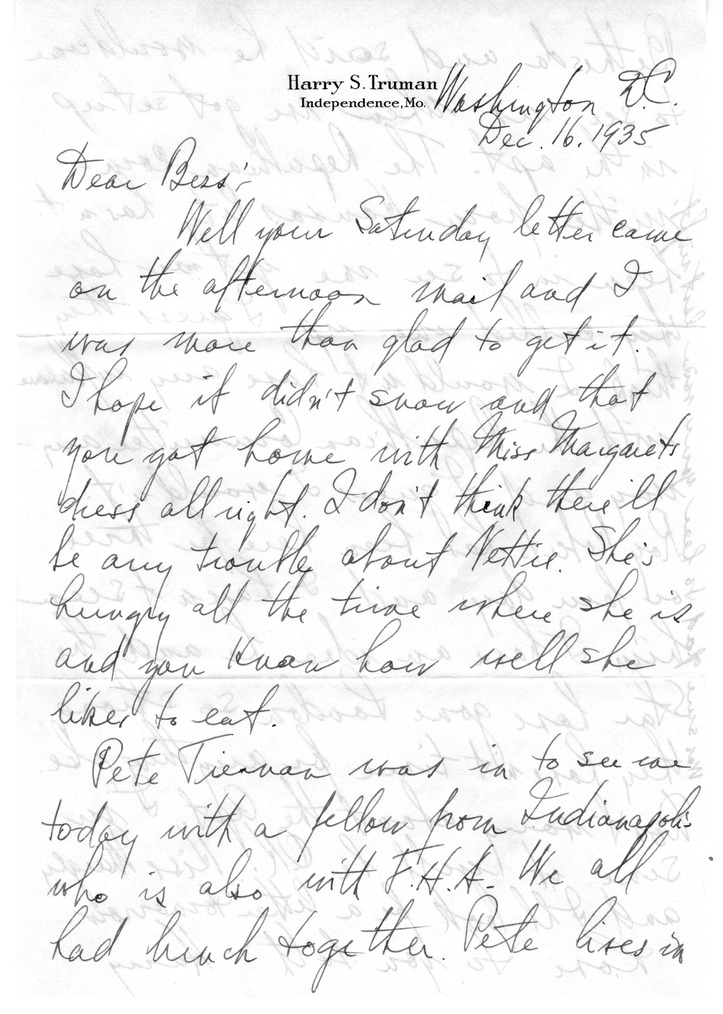 Harry S. Truman
Independence, Mo.
Washington D.C.
Dec. 16, 1935
Dear Bess:-
Well your Saturday letter came
on the afternoon mail and I
was more than glad to get it.
I hope it didn't snow and that
you got home with Miss Margaret's
dress all right. I don't think there'll
be any trouble about Nettie. She's
hungry all the time where she is
and you know how well she
likes to eat.
Pete Tiernan was in to see me
today with a fellow from Indianapolis
who is also with F.H.A. We all
had lunch together. Pete lives in